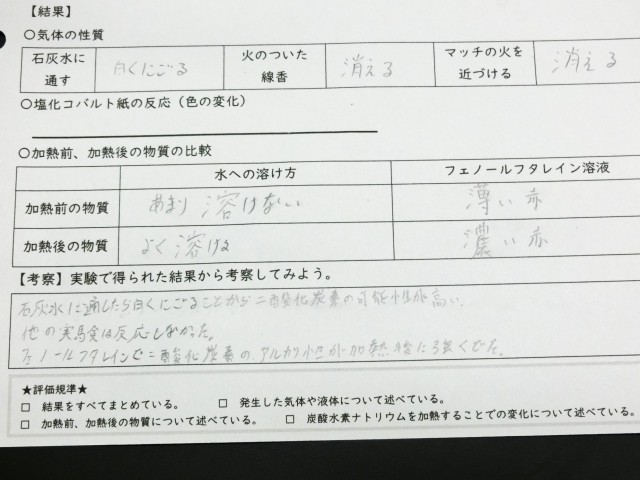 【結果】
○気体の性質
石灰水に通す 白くにごる 火のついた線香 消える マッチの火を近づける 消える
○塩化コバルト紙の反応（色の変化）
○加熱前、加熱後の物質の比較
水への溶け方 フェノールフタレイン溶液
加熱前の物質 あまり溶けない 薄い赤
加熱後の物質 よく溶ける 濃い赤
【考察】実験で得られた結果から考察してみよう。
石灰水に通したら白くにごることから二酸化炭素の可能性が高い。
他の実験は反応しなかった。
フェノールフタレインで二酸化炭素の、アルカリ性が加熱後に強くでた。
★評価規準★
□ 結果をすべてまとめている。 □ 発生した気体や液体について述べている。
□ 加熱前、加熱後の物質について述べている。 □ 炭酸水素ナトリウムを加熱することでの変化について述べている。